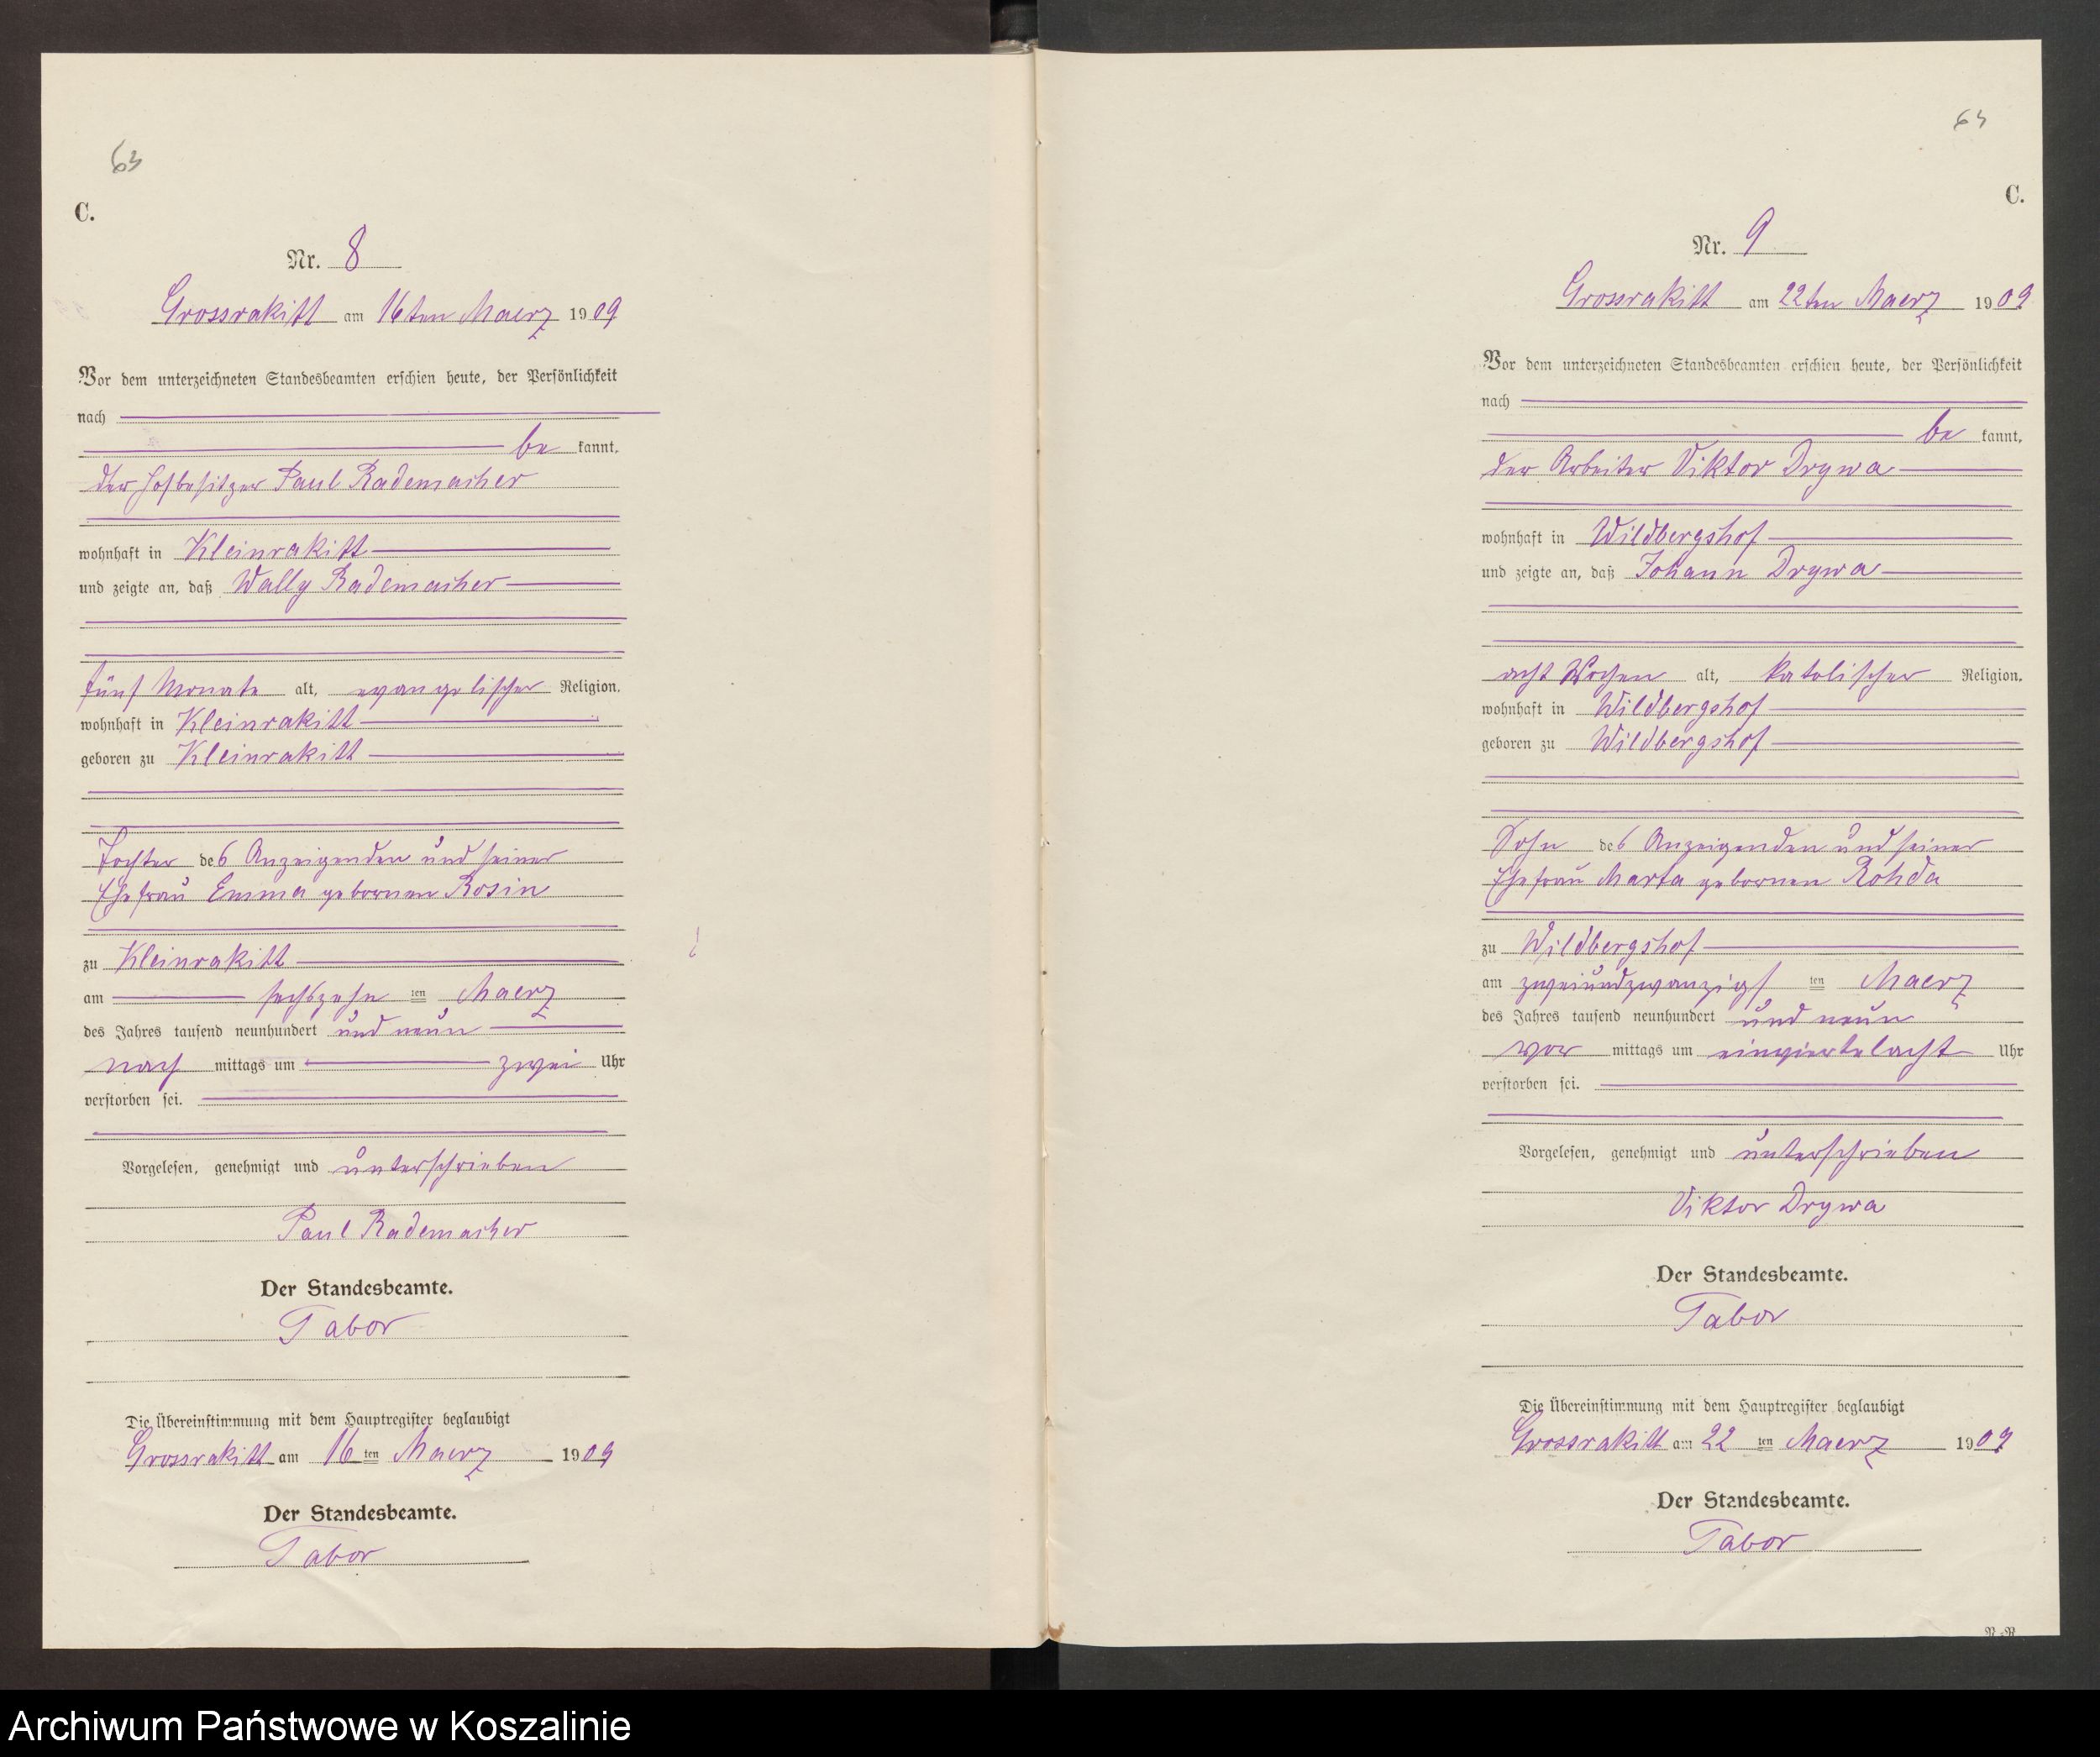 63
C.
Nr. 8
Grossrakitt am 16ten Maerz 1909
Vor dem unterzeichneten Standesbeamten erschien heute, der Persönlichkeit
nach
be kannt,
der Hofbesitzer Paul Rademacher
wohnhaft in Kleinrakitt
und zeigte an, daß Wally Rademacher
fünf Monate alt, evangelischer Religion,
wohnhaft in Kleinrakitt
geboren zu Kleinrakitt
Tochter des Anzeigenden und seiner
Ehefrau Emma gebornen Rosin
zu Kleinrakitt
am sechszehn ten Maerz
des Jahres tausend neunhundert und neun
nach mittags um zwei Uhr
verstorben sei.
Vorgelesen, genehmigt und unterschrieben
Paul Rademacher
Der Standesbeamte.
Tabor
Die Übereinstimmung mit dem Hauptregister beglaubigt
Grossrakitt am 16 ten Maerz 1909
Der Standesbeamte.
Tabor
C.
Nr. 9
Grossrakitt am 22ten Maerz 1909
Vor dem unterzeichneten Standesbeamten erschien heute, der Persönlichkeit
nach
be kannt,
der Arbeiter Viktor Drywa
wohnhaft in Wildbergshof
und zeigte an, daß Johann Drywa
acht Wochen alt, katolischer Religion,
wohnhaft in Wildbergshof
geboren zu Wildbergshof
Sohn des Anzeigenden und seiner
Ehefrau Marta gebornen Rohda
zu Wildbergshof
am zweiundzwanzigs ten Maerz
des Jahres tausend neunhundert und neun
vor mittags um einviertelacht Uhr
verstorben sei.
Vorgelesen, genehmigt und unterschrieben
Viktor Drywa
Der Standesbeamte.
Tabor
Die Übereinstimmung mit dem Hauptregister beglaubigt
Grossrakitt am 22 ten Maerz 1909
Der Standesbeamte.
Tabor
Archiwum Państwowe w Koszalinie